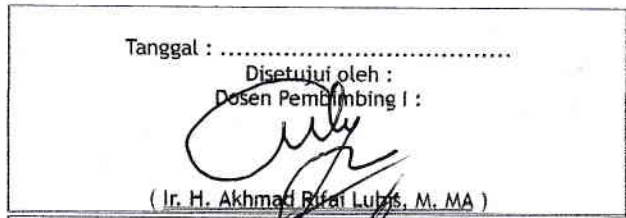 Tanggal : ....................................
Disetujui oleh :
Dosen Pembimbing I :
( Ir. H. Akhmad Rifai Lubis, M. MA )